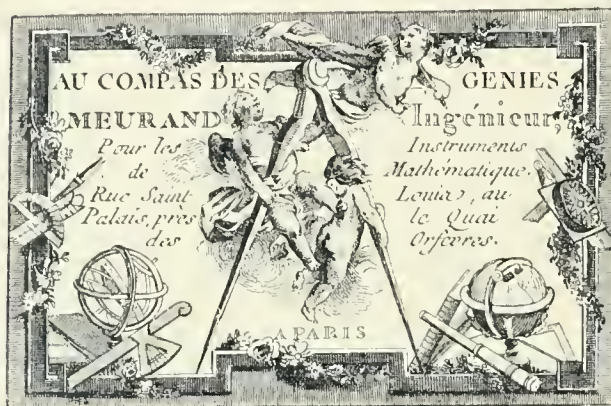 AU COMPAS DES GENIES
MEURAND Ingénieur,
Pour les Instruments
de Mathématique.
Rue Saint Louis, au
Palais, près le Quai
des Orfevres.
A PARIS